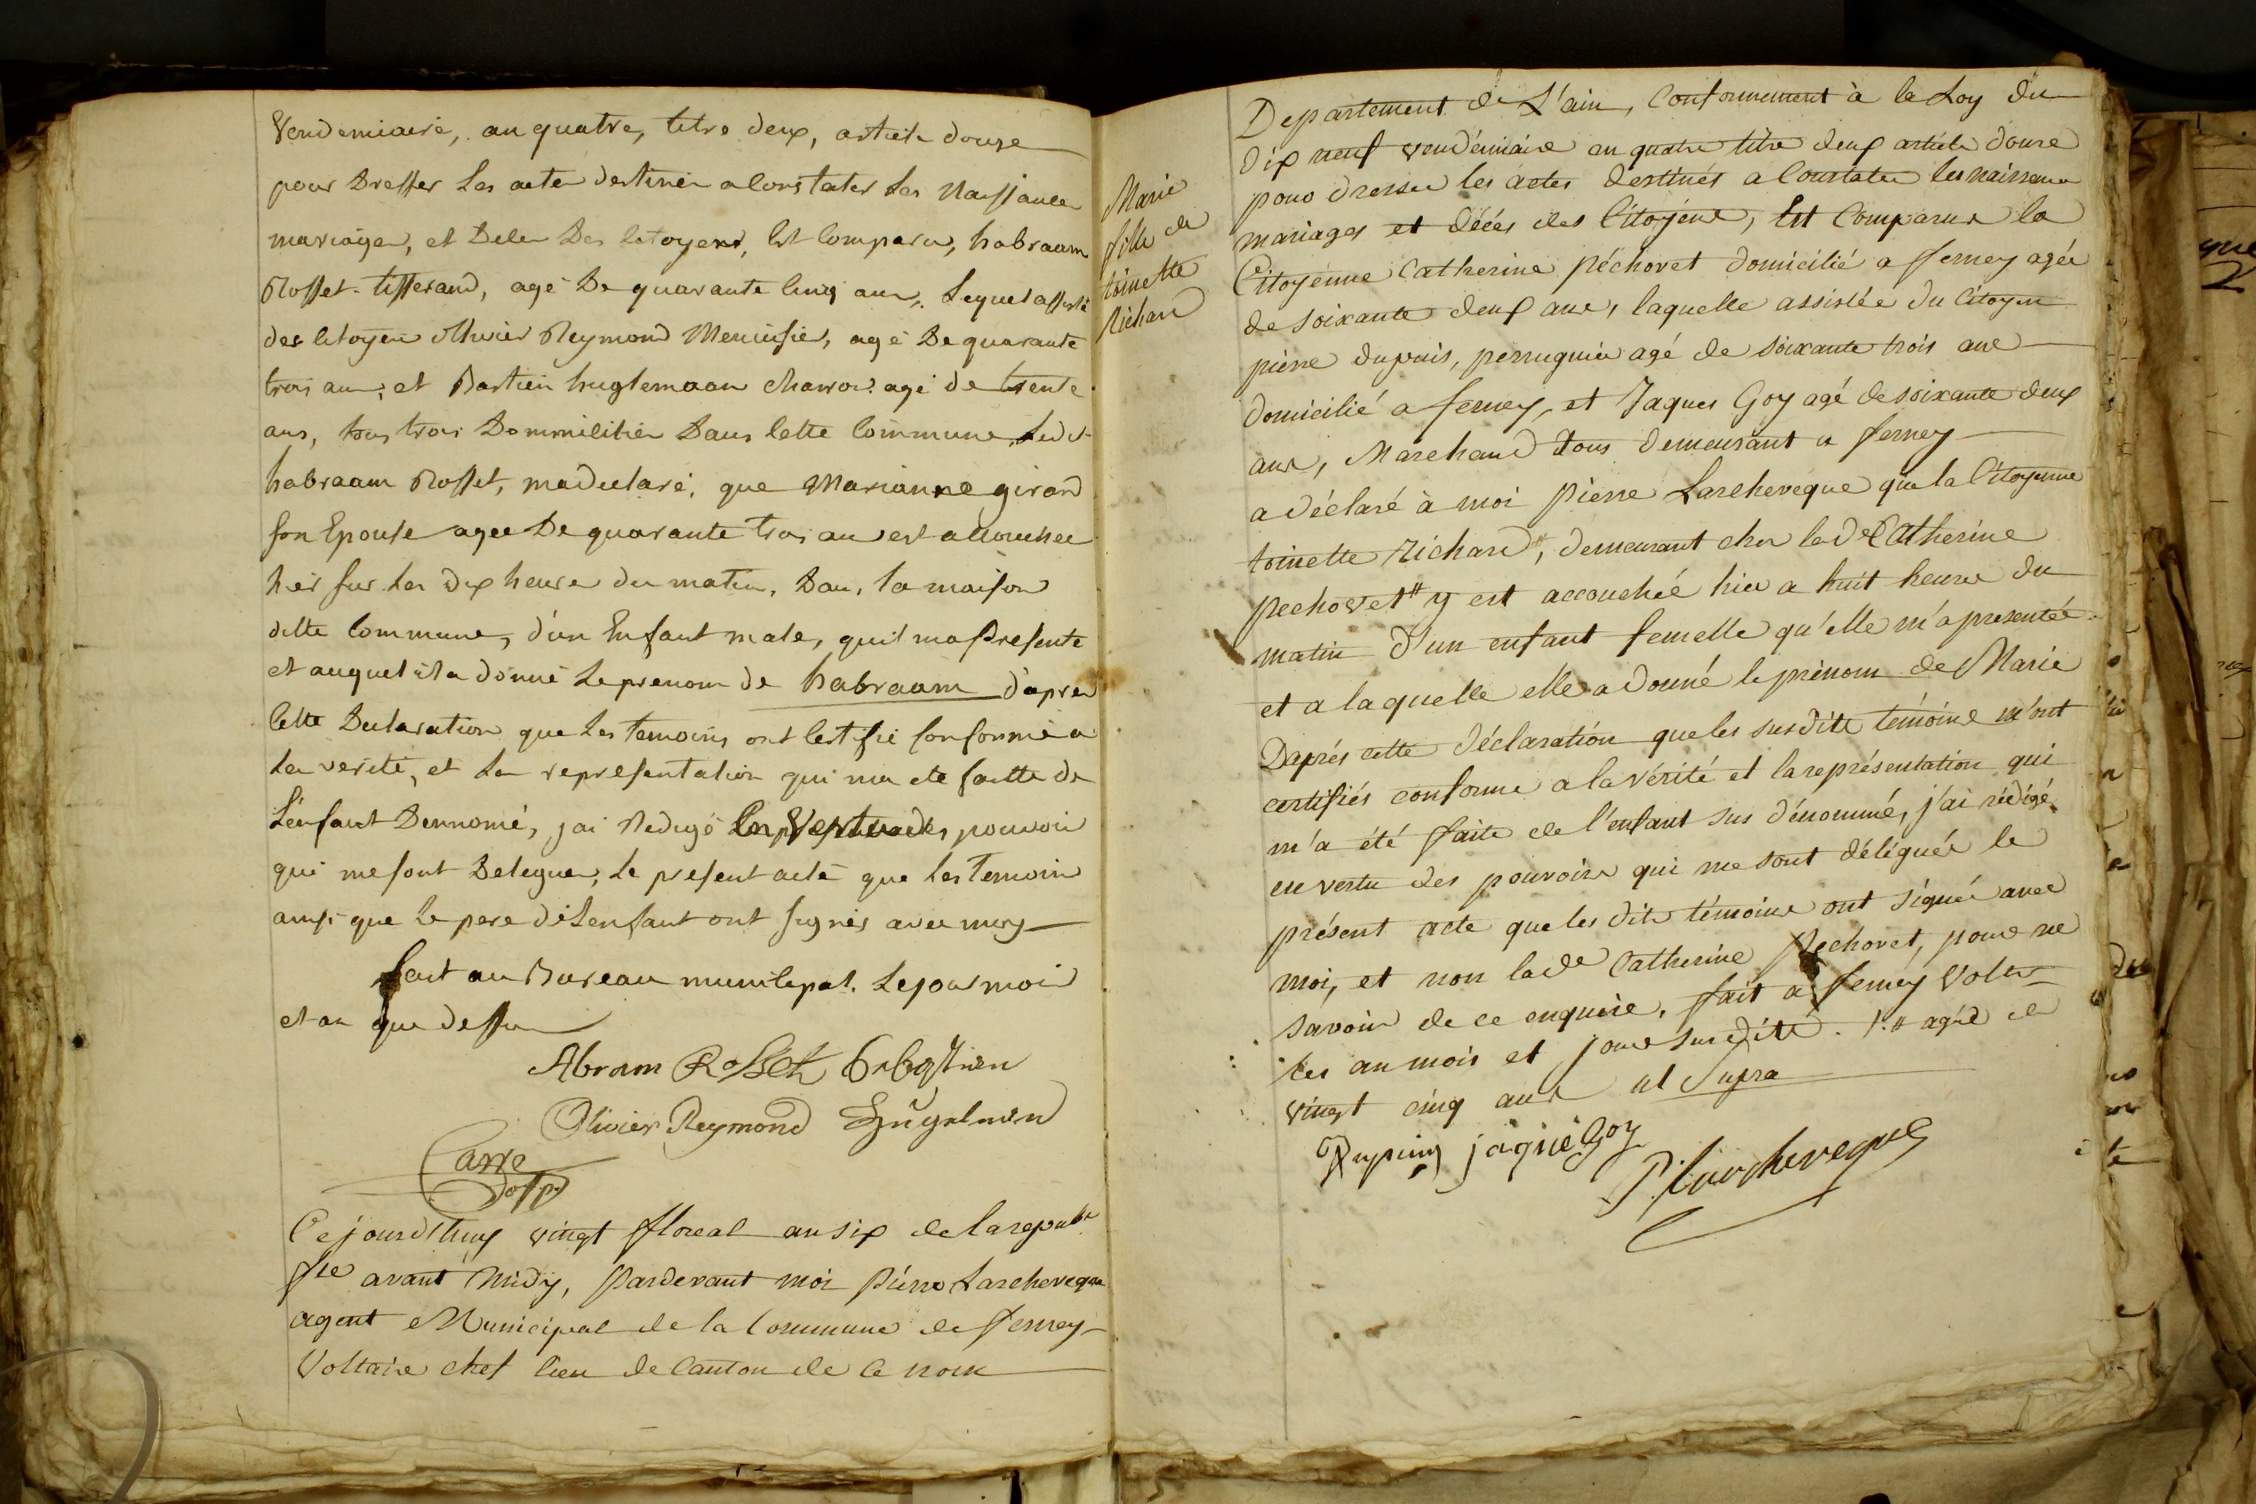 Vendemiaire, an quatre, titre deux, article douze
pour Dresser Les actes destinés a Constater Les Naissances
mariages, et Deces Des Citoyens, Est Comparu, habraam
Rosset tisserand, agé De quarante Cinq ans, Lequel assisté
des Citoyens Olivier Reymond Menuisier, agé De quarante
trois ans, et Bastien huglemaan Charron agé de trente
ans, tous trois Dommicilies Dans Cette Commune, Ledit
habraam Rosset, ma declaré, que Marianne girard
son Epouse agee De quarante trois ans est accouchee
hier sur Les Dix heures du matin, Dans, sa maison
dItte Commune, d'un Enfant male, quil ma Presente
et auquel il a donné Le prenom de habraam d'apres
Cette Declaration que Les temoins ont Certifié Conforme a
La verité, et La representation qui ma ete faitte de
L'enfant Dennomé, jai Redigé En Vertu des pouvoir
qui me sont Delegues, Le present acte que Les Temoins
ainsi que Le pere de Lenfant ont signés avec moy
fait au Bureau municipal. Le jour mois
et an que dessus
Abram Rosset Sebastien
Olivier Reymond Hugelmen
Carre
Ce jourd'huy vingt floreal an six de la repub.e
fse avant midy, Pardevant moi Pierre Larcheveque
agent Municipal de la Commune de Ferney
Voltaire chef lieu de Canton de Ce nom
Marie
fille de
toinette
Richard
Departement de L'ain, Conformement à la Loy du
dix neuf vendémiaire an quatre titre deux article douze
pour dresser les actes destinés a Constater les naissances
mariages et décés des Citoyens, Est Comparue la
Citoyenne Catherine Péchovet domicilié a Ferney agée
de soixante deux ans, laquelle assistée du Citoyen
pierre dupuis, perruquier agé de soixante trois ans
domicilié a ferney, et Jaques Goy agé de soixante deux
ans, Marchand tous demeurant a ferney
a déclaré à moi Pierre Larcheveque que la Citoyenne
toinette Richard #, demeurant chez lade Catherine
Pechovet # y est accouchée hier a huit heures du
matin d'un enfant femelle qu'elle m'a presentée
et a laquelle elle a donné le prénom de Marie
Daprés cette déclaration que les susdits témoins m'ont
certifiés conforme a la vérité et la représentation qui
m'a été faite de l'enfant sus dénommé, j'ai rédigé
en vertu des pouvoirs qui me sont délégués le
présent acte que les dits témoins ont signés avec
moi, et non lade Catherine Pechovet, pour ne
savoir de ce enquise, fait a ferney Voltai
les an mois et jour susdits. # agée de
vingt cinq ans ut supra
Dupuis jaque Goy
P. Larcheveque